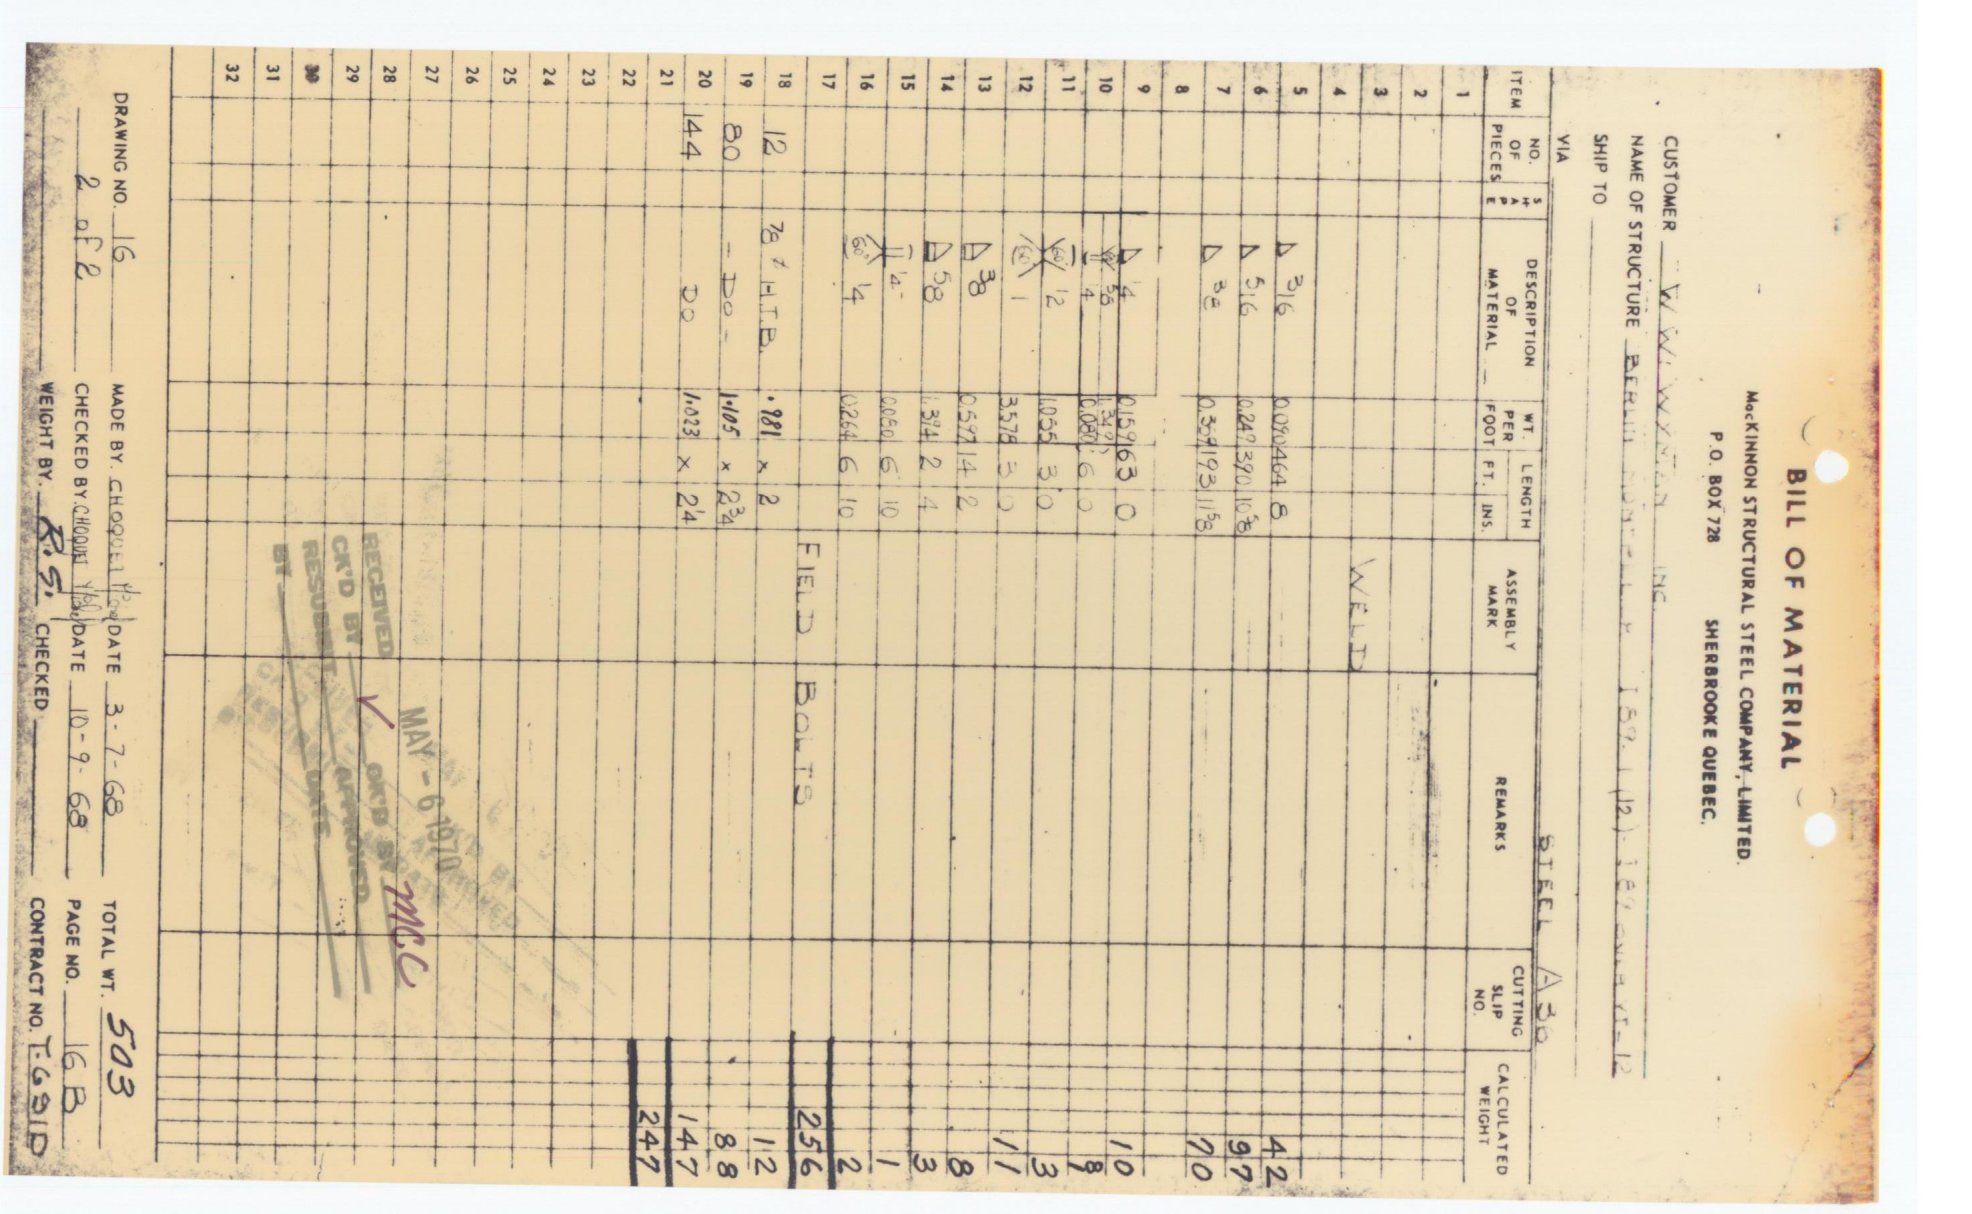 BILL OF MATERIAL
MacKINNON STRUCTURAL STEEL COMPANY, LIMITED.
P.O. BOX 728 SHERBROOKE QUEBEC.
CUSTOMER W. W. WYMAN INC.
NAME OF STRUCTURE BERLIN
SHIP TO
VIA
STEEL A36
ITEM NO. OF PIECES SHAPE DESCRIPTION OF MATERIAL WT. PER FOOT LENGTH FT. INS. ASSEMBLY MARK REMARKS CUTTING SLIP NO. CALCULATED WEIGHT
1
2
3
4 WELD
5 △ 3/16 0.090 464 8 42
6 △ 5/16 0.249 390 10 5/8 97
7 △ 3/8 193 11 5/8 70
8
9 △ 1/4 0.159 63 0 10
10 0.080 6 0
11 60° 1/2 1.055 3 0 3
12 60° 1 3.578 3 0 11
13 △ 3/8 0.597 14 2 8
14 △ 5/8 1.394 2 4 3
15 1/4 0.080 6 10 1
16 60° 1/4 0.264 6 10 2
17 FIELD BOLTS 256
18 12 7/8 ⌀ H.T.B. .981 x 2 12
19 80 - DO - 1.105 x 2 3/4 88
20 144 DO 1.023 x 2 1/4 147
21 247
22
23
24
25
26
27
28
29
30
31
32
MAY - 6 1970
RECEIVED
CK'D BY OK'D BY MCC
RESUBMIT APPROVED
BY DATE
DRAWING NO. 16 MADE BY. CHOQUET DATE 3-7-68 TOTAL WT. 503
2 of 2 CHECKED BY CHOQUET DATE 10-9-68 PAGE NO. 16 B
WEIGHT BY. R.S. CHECKED CONTRACT NO. T-691D